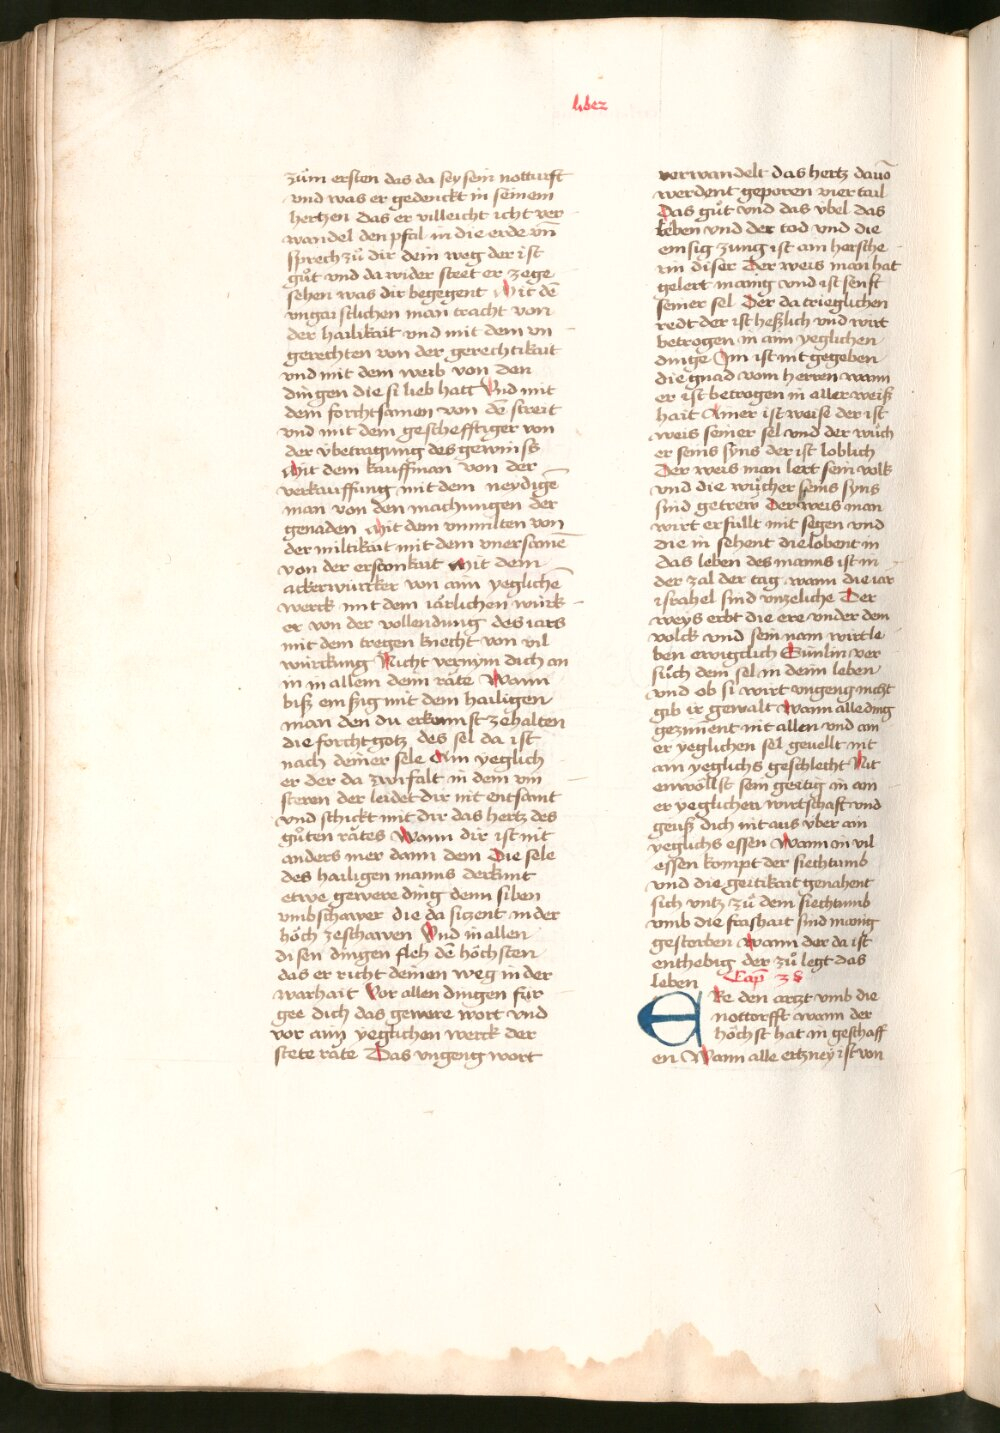 liber
zům ersten das da sey sein notturft
vnd was er gedenckt in seinem
hertzen das er villeicht icht ver
wandel den pfal in die erde vn̄
sprech zů dir dein weg der ist
gůt vnd da wider steet er zege
sehen was dir begegent Mit dē
vngaistlichen man tracht von
der hailikait vnd mit dem vn
gerechten von der gerechtikait
vnd mit dem weib von den
dingen die si lieb hatt Vnd mit
dem forchtsamen von dē streit
vnd mit dem geschefftiger von
der v̈betragung des gewinss
Mit dem kauffman von der
verkauffung mit dem neydigē
man von den machungen der
genaden Mit dem vnmilten von
der miltikait mit dem vnersamē
von der ersamkait Mit dem
ackerwürcker von aim yegliche͂
werck mit dem iärlichen würk
er von der vollendung des iars
mit dem tregen knecht von vil
würckung Nicht vernym dich an
in in allem dem räte Wann
biß emssig mit dem hailigen
man den du erkennst zehalten
die forcht gotz des sel da ist
nach deiner sele Ain yeglich
er der da zwifalt in dem vin
steren der leidet dir nit entsamt
vnd schickt mit dir das hertz des
gůten rätes Wann dir ist nit
anders mer dann dem Die sele
des hailigen manns derkint
etwe gewere ding denn siben
vmbschawer die da siczent in der
höch zeschawen Vnd in allen
disen dingen fleh dē höchsten
das er richt deinen weg in der
warhait Vor allen dingen für
gee dich das gewere wort vnd
vor aim yeglichen werck der
stete räte Das vngeng wort
verwandelt das hertz dauō
werdent geporen vier tail
Das gůt vnd das v̈bel das
leben vnd der tod vnd die
emsig zung ist ain hersche
rin diser Der weis man hat
gelert manig vnd ist senft
seiner sel Der da trieglichen
redt der ist heßlich vnd wirt
betrogen in aim yeglichen
dinge Im ist nit gegeben
die gnad vom herren wann
er ist betrogen in aller weiß
hait Ainer ist weise der ist
weis seiner sel vnd der wůch
er seins syns der ist loblich
Der weis man lert sein volk
vnd die wůcher seins syns
sind getrew Der weis man
wirt erfüllt mit segen vnd
die in sehent die lobent in
Das leben des manns ist in
der zal der tag wann die iar
israhel sind vnzeliche Der
weys erbt die ere vnder dem
volck vnd sein nam wirt le
ben ewigclich Sünlin ver
sůch dein sel in deim leben
vnd ob si wirt vngeng nicht
gib ir gewalt Wann alle ding
gezinent nit allen vnd ain
er yeglichen sel geuellt nit
ain yeglichs geschlecht Nit
enwöllst sein geitig in ain
er yeglichen wirtschaft vnd
geuß dich nit aus v̈ber ain
yeglichs essen Wann in vil
essen kompt der siechtumb
vnd die geitikait genahent
sich vntz zů dem siechtumb
vmb die frashait sind manig
gestorben Wann der da ist
enthebig der zů legt das
leben Cap̄ 38
Ere den arczt vmb die
nottorfft wann der
höchst hat in geschaff
en Wann alle ertzney ist von